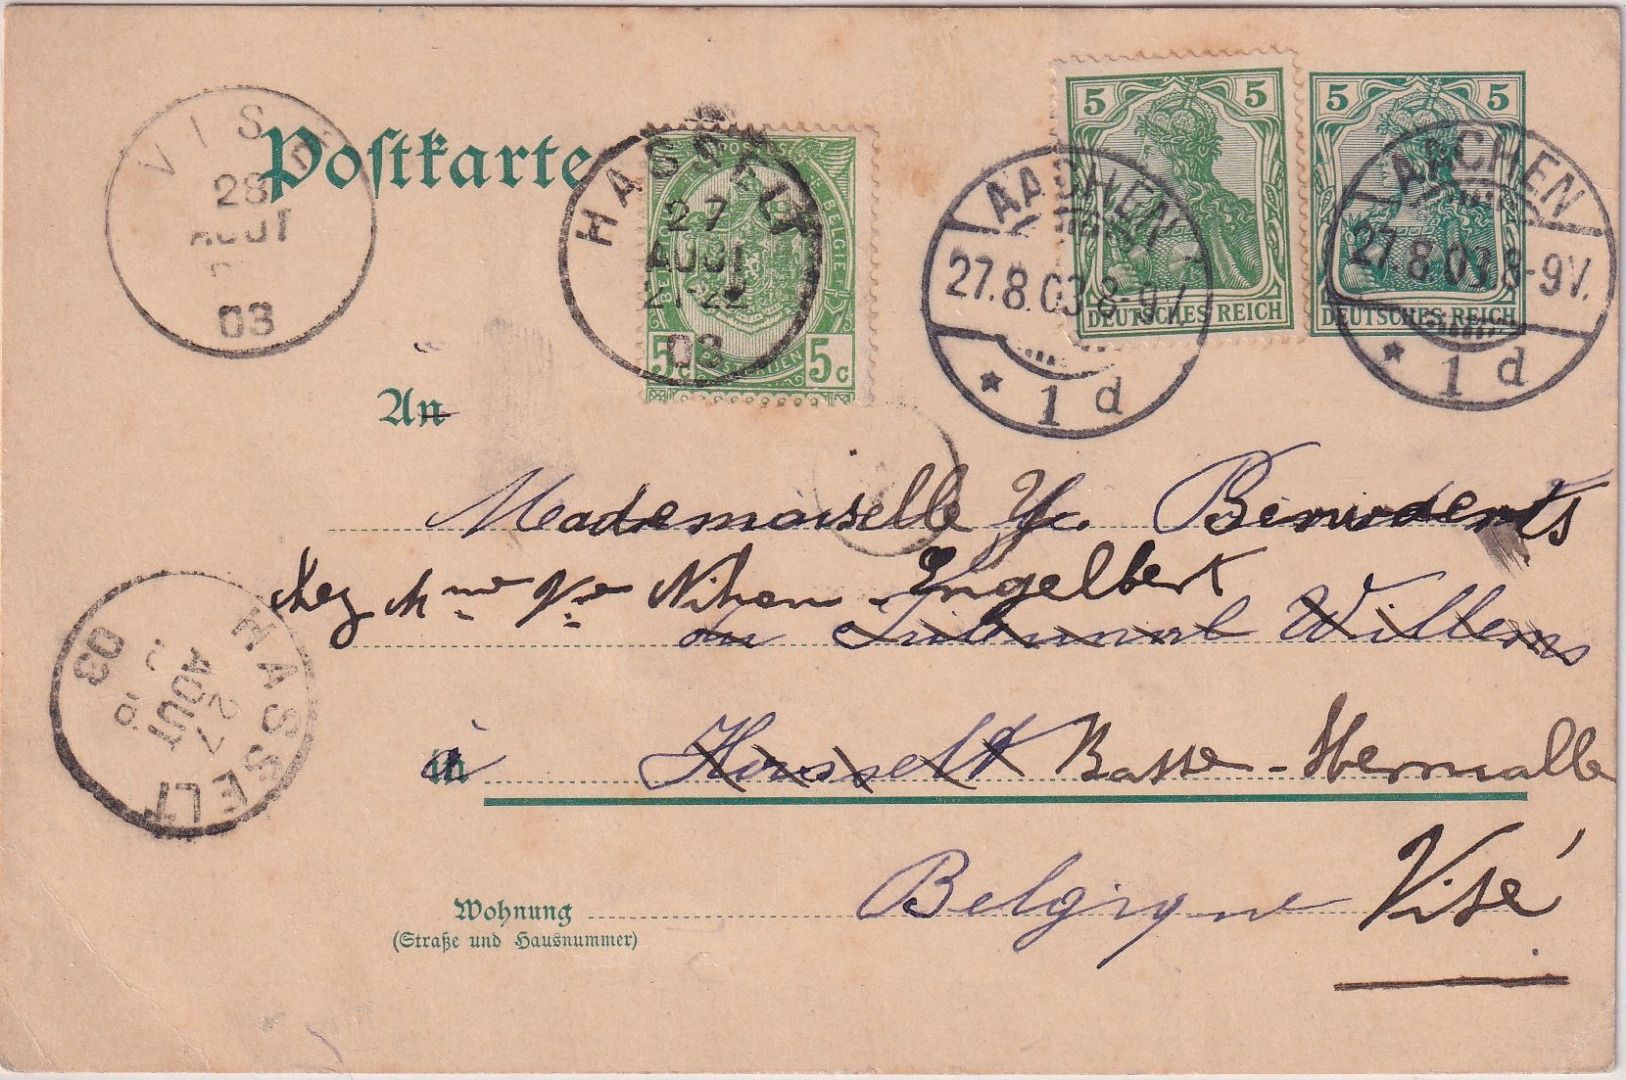 Postkarte
VISÉ
28
AOUT
03
HASSELT
27
AOUT
21-22
03
BELGIQUE
BELGIE
5c
5c
POSTERIJEN
5 5
DEUTSCHES REICH
AACHEN
27.8.03 8-9V.
* 1 d
5 5
DEUTSCHES REICH
AACHEN
27.8.03 8-9V.
* 1 d
An
Mademoiselle
chez Mme Vve Nihon-Engelbert
au Tribunal Willems
HASSELT
27
AOUT
03
in
à Hasselt Basse-Hermalle
Belgique Visé
Wohnung
(Straße und Hausnummer)